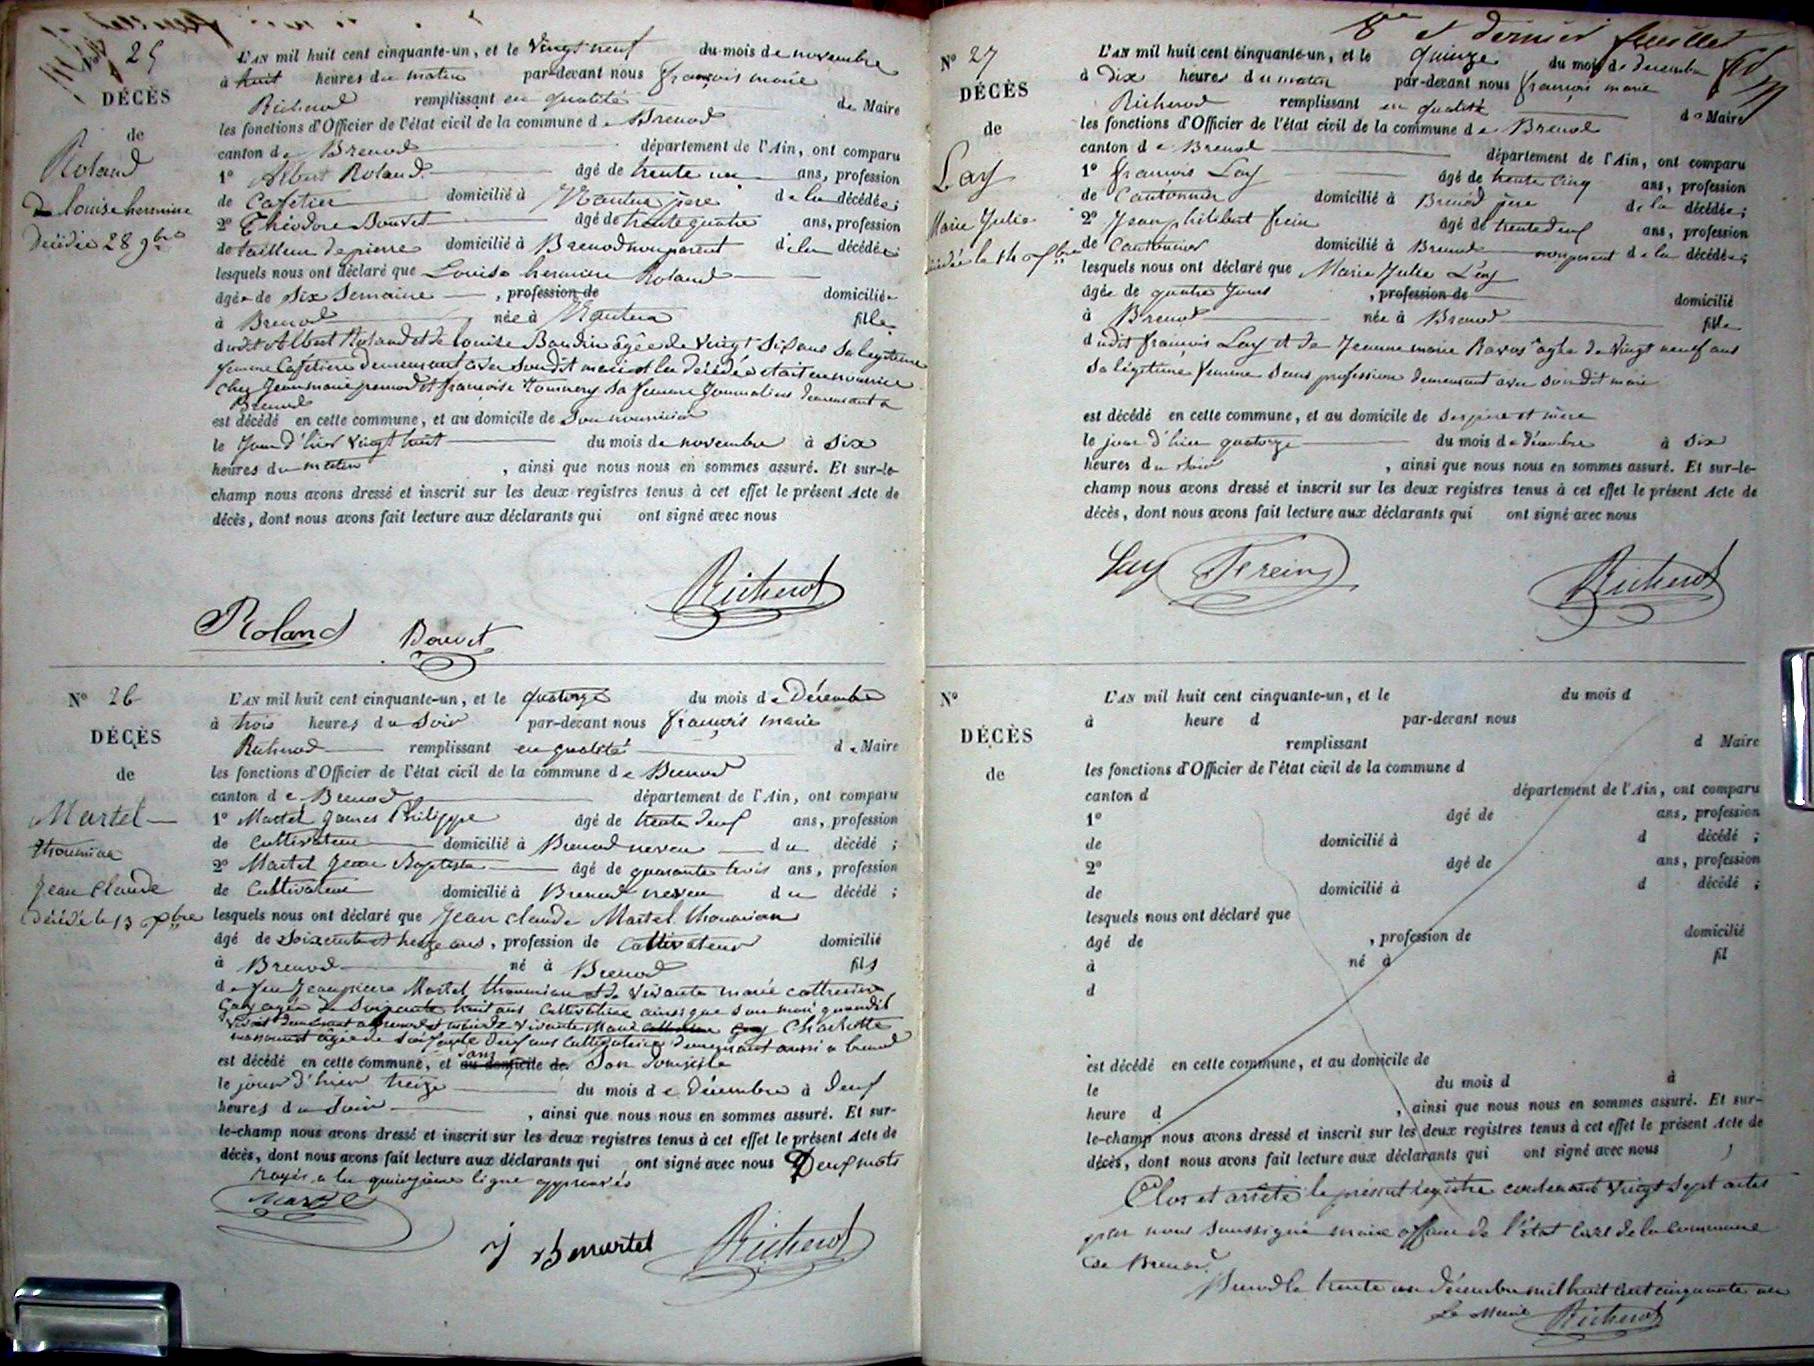 N° 25
DÉCÈS
de
Roland
Louise hermine
Décédée 28 9bre
L'AN mil huit cent cinquante-un, et le Vingt neuf du mois de novembre
à huit heures du matin par-devant nous françois marie
Richerod remplissant en qualité de Maire
les fonctions d'Officier de l'état civil de la commune de Brenod
canton de Brenod département de l'Ain, ont comparu
1° Albert Roland âgé de trente un ans, profession
de Cafetier domicilié à Nantua père de la décédée;
2° Théodore Bouvet âgé de trente quatre ans, profession
de tailleur de pierre domicilié à Brenod non parent de la décédée
lesquels nous ont déclaré que Louise hermine Roland
âgée de Six Semaine, profession de domiciliée
à Brenod née à Nantua fille
dudit Albert Roland et de Louise Baudin âgée de Vingt Six ans Sa legitime
femme Cafetière demeurant avec Son dit mari et la décédée était en nourrice
chez Jean marie et françoise Sa femme Journaliers demeurant à
Brenod
est décédé en cette commune, et au domicile de Son nourricier
le Jour d'hier Vingt huit du mois de novembre à Six
heures du matin, ainsi que nous nous en sommes assuré. Et sur-le-
champ nous avons dressé et inscrit sur les deux registres tenus à cet effet le présent Acte de
décès, dont nous avons fait lecture aux déclarants qui ont signé avec nous
Richerod
Roland Bouvet
N° 26
DÉCÈS
de
Martel
thoumian
Jean Claude
Décédé le 13 Xbre
L'AN mil huit cent cinquante-un, et le quatorze du mois de Décembre
à trois heures du Soir par-devant nous françois marie
Richerod remplissant en qualité de Maire
les fonctions d'Officier de l'état civil de la commune de Brenod
canton de Brenod département de l'Ain, ont comparu
1° Martel James Philippe âgé de trente deuf ans, profession
de Cultivateur domicilié à Brenod neveu du décédé;
2° Martel Jean Baptiste âgé de quarante trois ans, profession
de Cultivateur domicilié à Brenod neveu du décédé;
lesquels nous ont déclaré que Jean Claude Martel thoumian
âgé de Soixante et treize ans, profession de Cultivateur domicilié
à Brenod né à Brenod fils
de feu Jean pierre Martel thoumian et de Vivante marie catherine
Gay agée de Soixante huit ans Cultivatrice ainsi que Son mari quand il
Vivait demeurant a Brenod et Vivante Marie Charlotte
âgée de Soixante deuf ans Cultivatrice demeurant aussi a brenod
est décédé en cette commune, et dans au domicile de Son Domicile
le jour d'hier treize du mois de décembre à deuf
heures du Soir, ainsi que nous nous en sommes assuré. Et sur-
le-champ nous avons dressé et inscrit sur les deux registres tenus à cet effet le présent Acte de
décès, dont nous avons fait lecture aux déclarants qui ont signé avec nous Deuf mots
rayés a la quinzième ligne approuvés
Martel
J B martel Richerod
8me et dernier feuillet
N° 27
DÉCÈS
de
Lay
Marie Julie
décédée le 14 Xbre
L'AN mil huit cent cinquante-un, et le quinze du mois de decembre
à Dix heures du matin par-devant nous françois marie
Richerod remplissant en qualité de Maire
les fonctions d'Officier de l'état civil de la commune de Brenod
canton de Brenod département de l'Ain, ont comparu
1° françois Lay âgé de trente cinq ans, profession
de Cantonnier domicilié à Brenod père de la décédée;
2° Jean philibert âgé de trente deuf ans, profession
de Cantonnier domicilié à Brenod non parent de la décédée;
lesquels nous ont déclaré que Marie Julie Lay
âgée de quatre Jours, profession de domicilié
à Brenod née à Brenod fille
dudit françois Lay et de Jeanne marie agée de Vingt neuf ans
Sa légitime femme Sans profession demeurant avec Son dit mari
est décédé en cette commune, et au domicile de Ses père et mère
le jour d'hier quatorze du mois de décembre à Six
heures du Soir, ainsi que nous nous en sommes assuré. Et sur-le-
champ nous avons dressé et inscrit sur les deux registres tenus à cet effet le présent Acte de
décès, dont nous avons fait lecture aux déclarants qui ont signé avec nous
Lay Richerod
N°
DÉCÈS
de
L'AN mil huit cent cinquante-un, et le du mois d
à heure d par-devant nous
remplissant d Maire
les fonctions d'Officier de l'état civil de la commune d
canton d département de l'Ain, ont comparu
1° âgé de ans, profession
de domicilié à d décédé;
2° âgé de ans, profession
de domicilié à d décédé;
lesquels nous ont déclaré que
âgé de , profession de domicilié
à né à fil
d
est décédé en cette commune, et au domicile de
le du mois d à
heure d , ainsi que nous nous en sommes assuré. Et sur-
le-champ nous avons dressé et inscrit sur les deux registres tenus à cet effet le présent Acte de
décès, dont nous avons fait lecture aux déclarants qui ont signé avec nous
Clos et arrêté le présent registre contenant Vingt Sept actes
par nous Soussigné maire officier de l'état Civil de la Commune
de Brenod.
Brenod le trente un décembre mil huit cent cinquante un
Le Maire Richerod